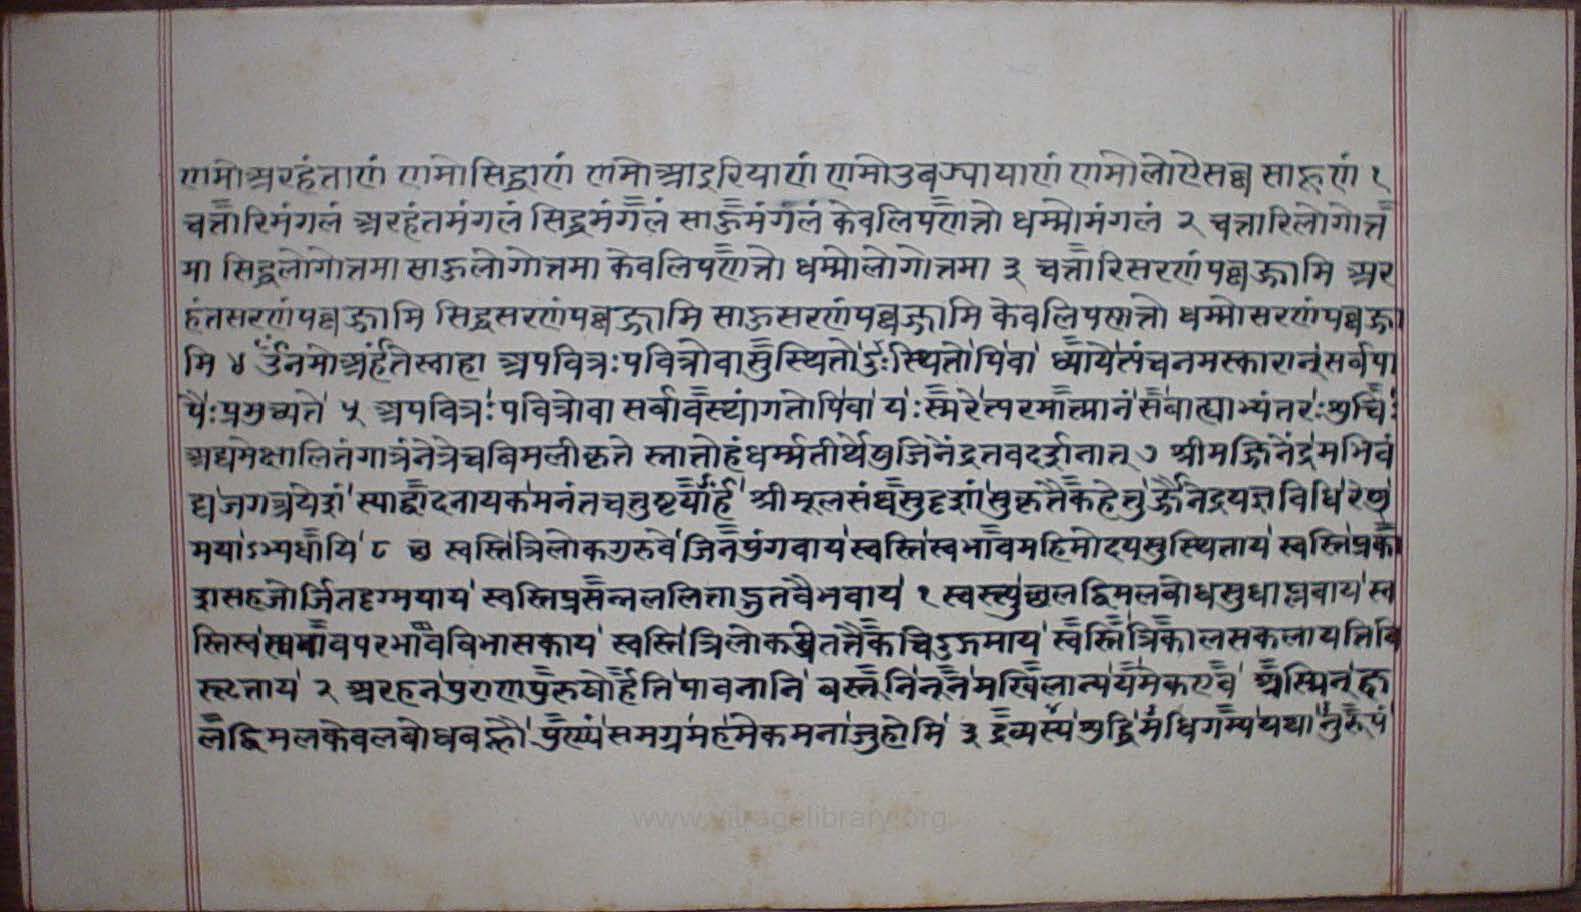 णमोअरहंताणं णमोसिद्धाणं णमोआइरियाणं णमोउवज्यायाणं णमोलोऐसव्व साहूणं १
चत्तारिमंगलं अरहंतमंगलं सिद्धमंगलं साऊमंगलं केवलिपणत्तो धम्मोमंगलं २ चत्तारिलोगोत्त
मा सिद्धलोगोत्तमा साऊलोगोत्तमा केवलिपणत्तो धम्मोलोगोत्तमा ३ चत्तारिसरणंपव्वज्जामि अर
हंतसरणंपव्वज्जामि सिद्धसरणंपव्वज्जामि साऊसरणंपव्वज्जामि केवलिपणत्तो धम्मोसरणंपव्वज्जा
मि ४ ॐनमोअर्हतेस्वाहा अपवित्रःपवित्रोवासुस्थितोदुःस्थितोपिवा ध्यायेत्पंचनमस्कारान्सर्वपा
पैःप्रमुच्यते ५ अपवित्रःपवित्रोवा सर्वावस्थांगतोपिवा यःस्मरेत्परमात्मानंसबाह्याभ्यंतरःशुचिः
अद्यमेक्षालितंगात्रंनेत्रेचविमलीकृते स्नातोहंधर्म्मतीर्थेषुजिनेंद्रतवदर्शनात् ७ श्रीमज्जिनेंद्रमभिवं
द्यजगत्त्रयेशं स्याद्वादनायकमनंतचतुष्टयार्हं श्रीमूलसंघसुदृशांसुकृतैकहेतुर्जैनेंद्रयज्ञविधिरेष
मयाऽभ्यधायि ८ छ स्वस्तित्रिलोकगुरुवेजिनपुंगवायस्वस्तिस्वभावमहिमोदयसुस्थिताय स्वस्तिप्रका
शसहजोर्जितदृग्मयाय स्वस्तिप्रसन्नललिताद्भुतवैभवाय १ स्वस्त्युच्छलद्विमलबोधसुधाप्लवायस्व
स्तिस्वस्वभावपरभावविभासकाय स्वस्तित्रिलोकविततैकचिदुज्जमाय स्वस्तित्रिकालसकलायतवि
स्तृताय २ अरहनपुराणपुरुषोर्हतिपावनानि वस्तूनिनूनमखिलान्ययमेकएव अस्मिन्ज्व
लद्विमलकेवलबोधवह्नौ पुण्यंसमग्रमहमेकमनाजुहोमि ३ द्रव्यस्यशुद्धिमधिगम्ययथानुरूपं
www.vitragelibrary.org